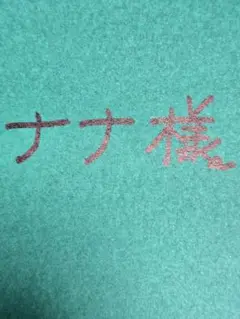 ナナ様